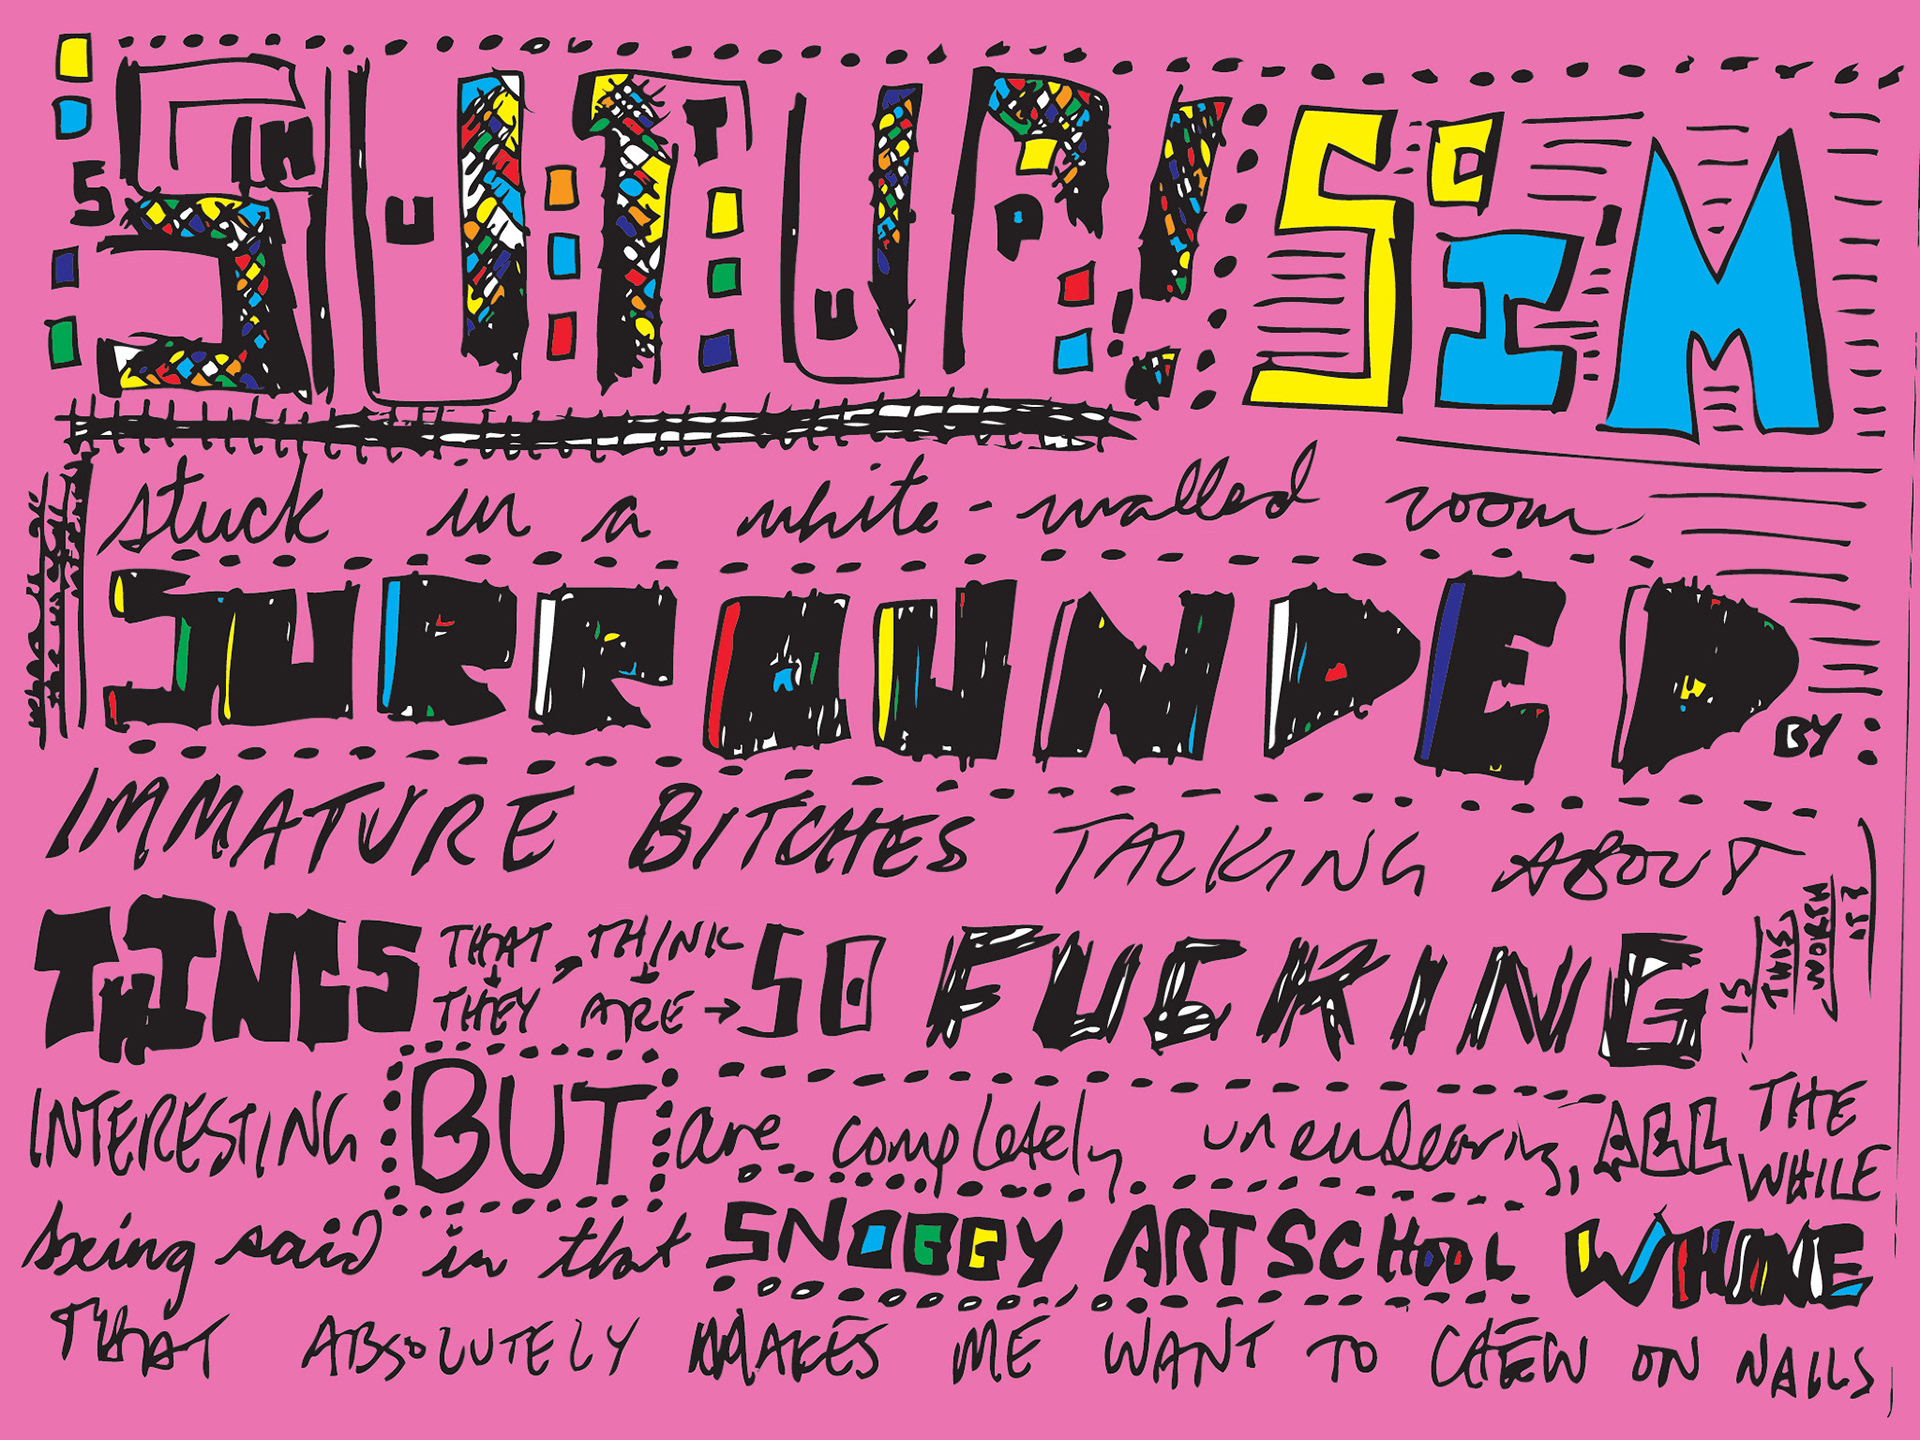 SHUTUP! SO I'M
stuck in a white-walled room
SURROUNDED BY
IMMATURE BITCHES TALKING ABOUT
THINGS THAT THEY THINK ARE SO FUCKING
IS THIS WORTH IT?
INTERESTING BUT are completely unendearing, ALL THE WHILE
being said in that SNOGGY ART SCHOOL WHINE
THAT ABSOLUTELY MAKES ME WANT TO CHEW ON NAILS